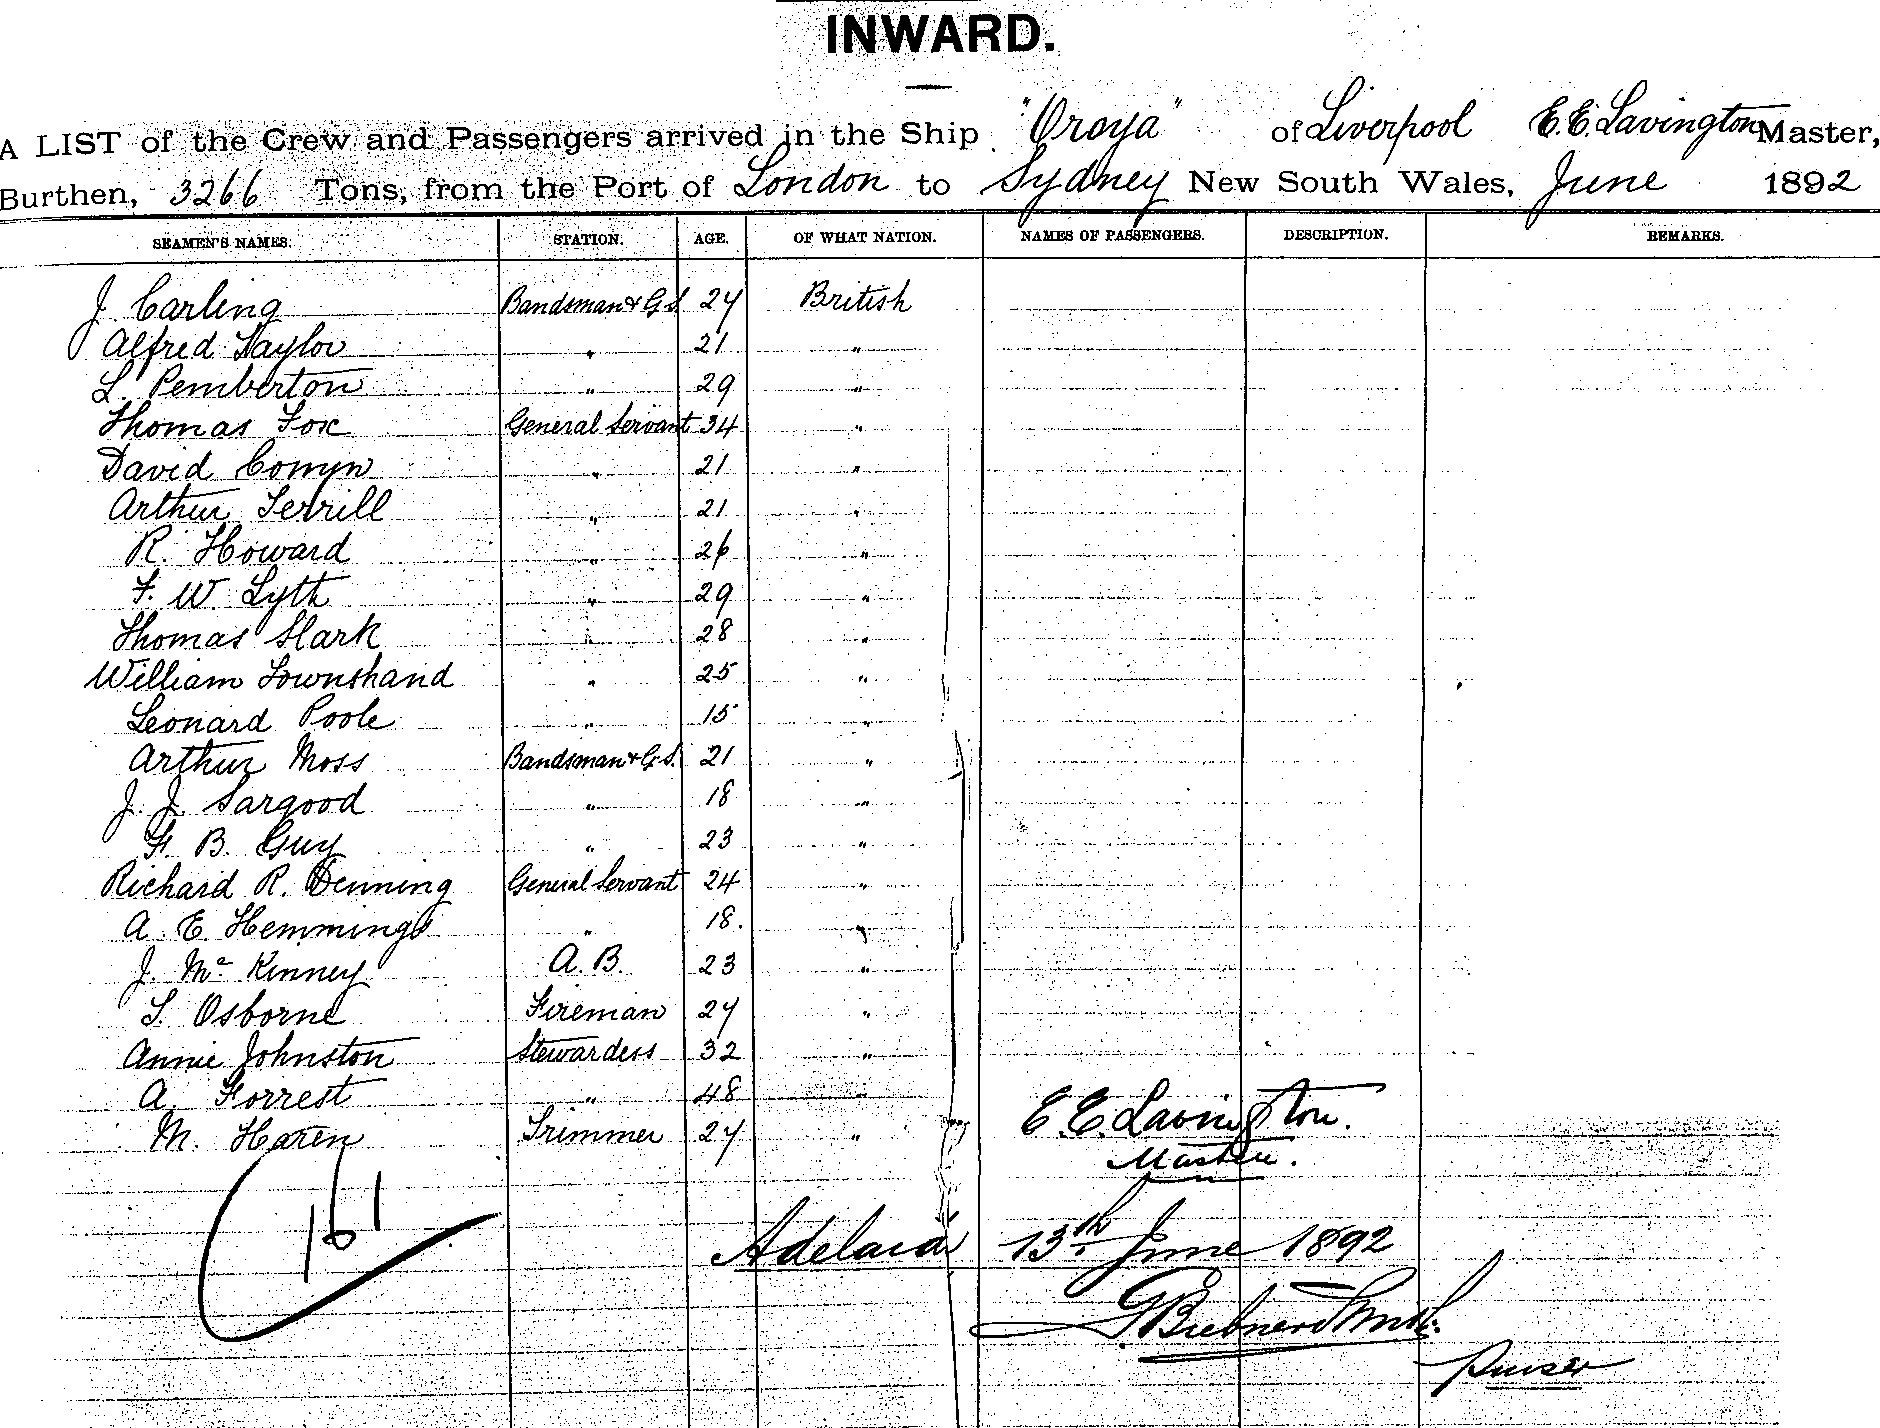 INWARD.
A LIST of the Crew and Passengers arrived in the Ship "Oroya" of Liverpool E. E. Lavington Master,
Burthen, 3266 Tons, from the Port of London to Sydney New South Wales, June 1892
SEAMEN'S NAMES. STATION. AGE. OF WHAT NATION. NAMES OF PASSENGERS. DESCRIPTION. REMARKS.
J. Carling Bandsman & G.S. 27 British
Alfred Taylor " 21 "
L. Pemberton " 29 "
Thomas Fox General Servant 34 "
David Comyn " 21 "
Arthur Terrill " 21 "
R. Howard " 26 "
F. W. Lyth " 29 "
Thomas Slark " 28 "
William Townshand " 25 "
Leonard Poole " 15 "
Arthur Moss Bandsman & G.S. 21 "
J. J. Sargood " 18 "
F. B. Guy " 23 "
Richard R. Denning General Servant 24 "
A. E. Hemmings " 18. "
J. Mc Kinney A. B. 23 "
S. Osborne Fireman 27 "
Annie Johnston Stewardess 32 "
A. Forrest " 48 "
M. Haren Trimmer 27 "
E. E. Lavington.
Master.
161
Adelaide 13th June 1892
Purser